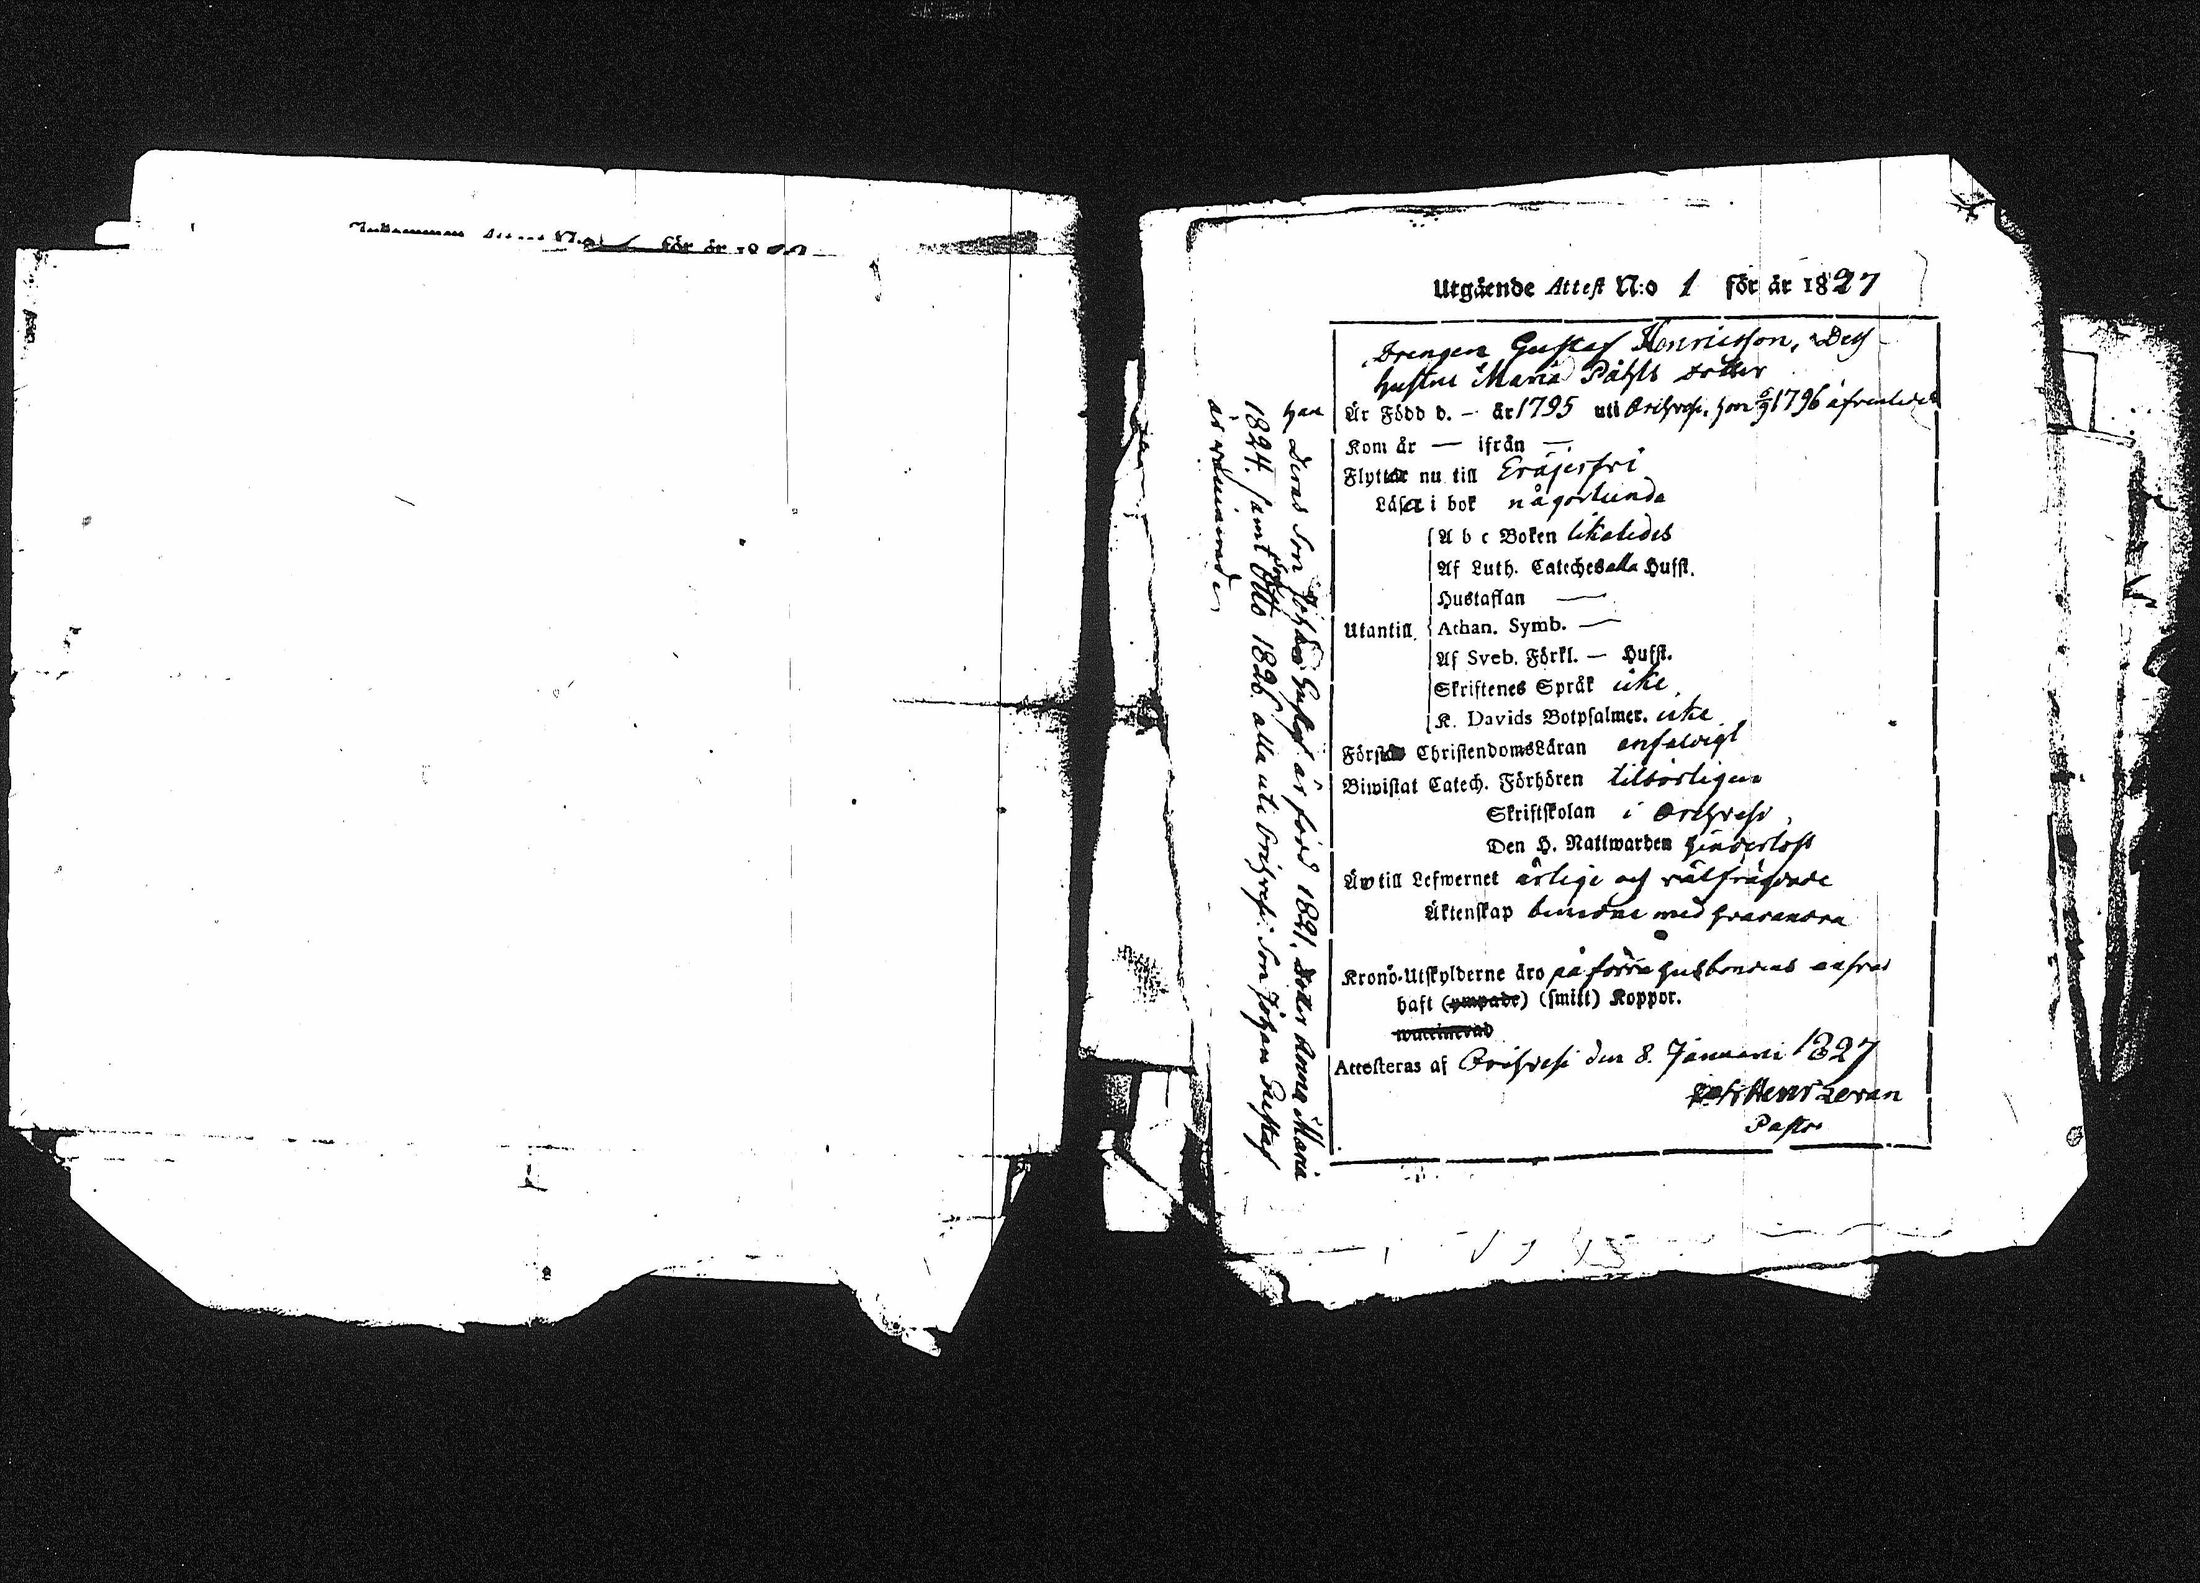 för år 18
Utgående Attest N:o 1 för år 1827
Drengen Gustaf Henricsson, Dess
hustru Maria Påhls dotter
han Är Född d. — år 1795 uti Orihvesi. hon 1796 åfvenledes
Kom år — ifrån —
Flyttar nu till Eräjerfvi
Läser i bok någorlunda
A b c Boken likaledes
Af Luth. Cateches alla Hufst.
Hustaflan —
Utantill Athan. Symb. —
Af Sveb. Förkl. — Hufst.
Skriftenes Språk icke
K. Davids Botpsalmer. icke
Förstår ChristendomsLäran enfaldigt
Biwistat Catech. Förhören tilbörligen
Skriftskolan i Orihvesi
Den H. Nattwarden hinderlöst
Är till Lefwernet ärlige och välfrägdade
Äktenskap bundne med hvarandra
Krono-Utskylderne äro på förra husbondens ansvar
haft (ympade) (smitt) Koppor.
waccinerad
Attesteras af Orihvesi den 8. Januari 1827
Pastor
Deras Son Johan Gustaf är född 1821, dotter Anna Maria
1824. samt Son Otto 1826 alla uti Orihvesi. Son Johan Gustaf
är vaccinerade